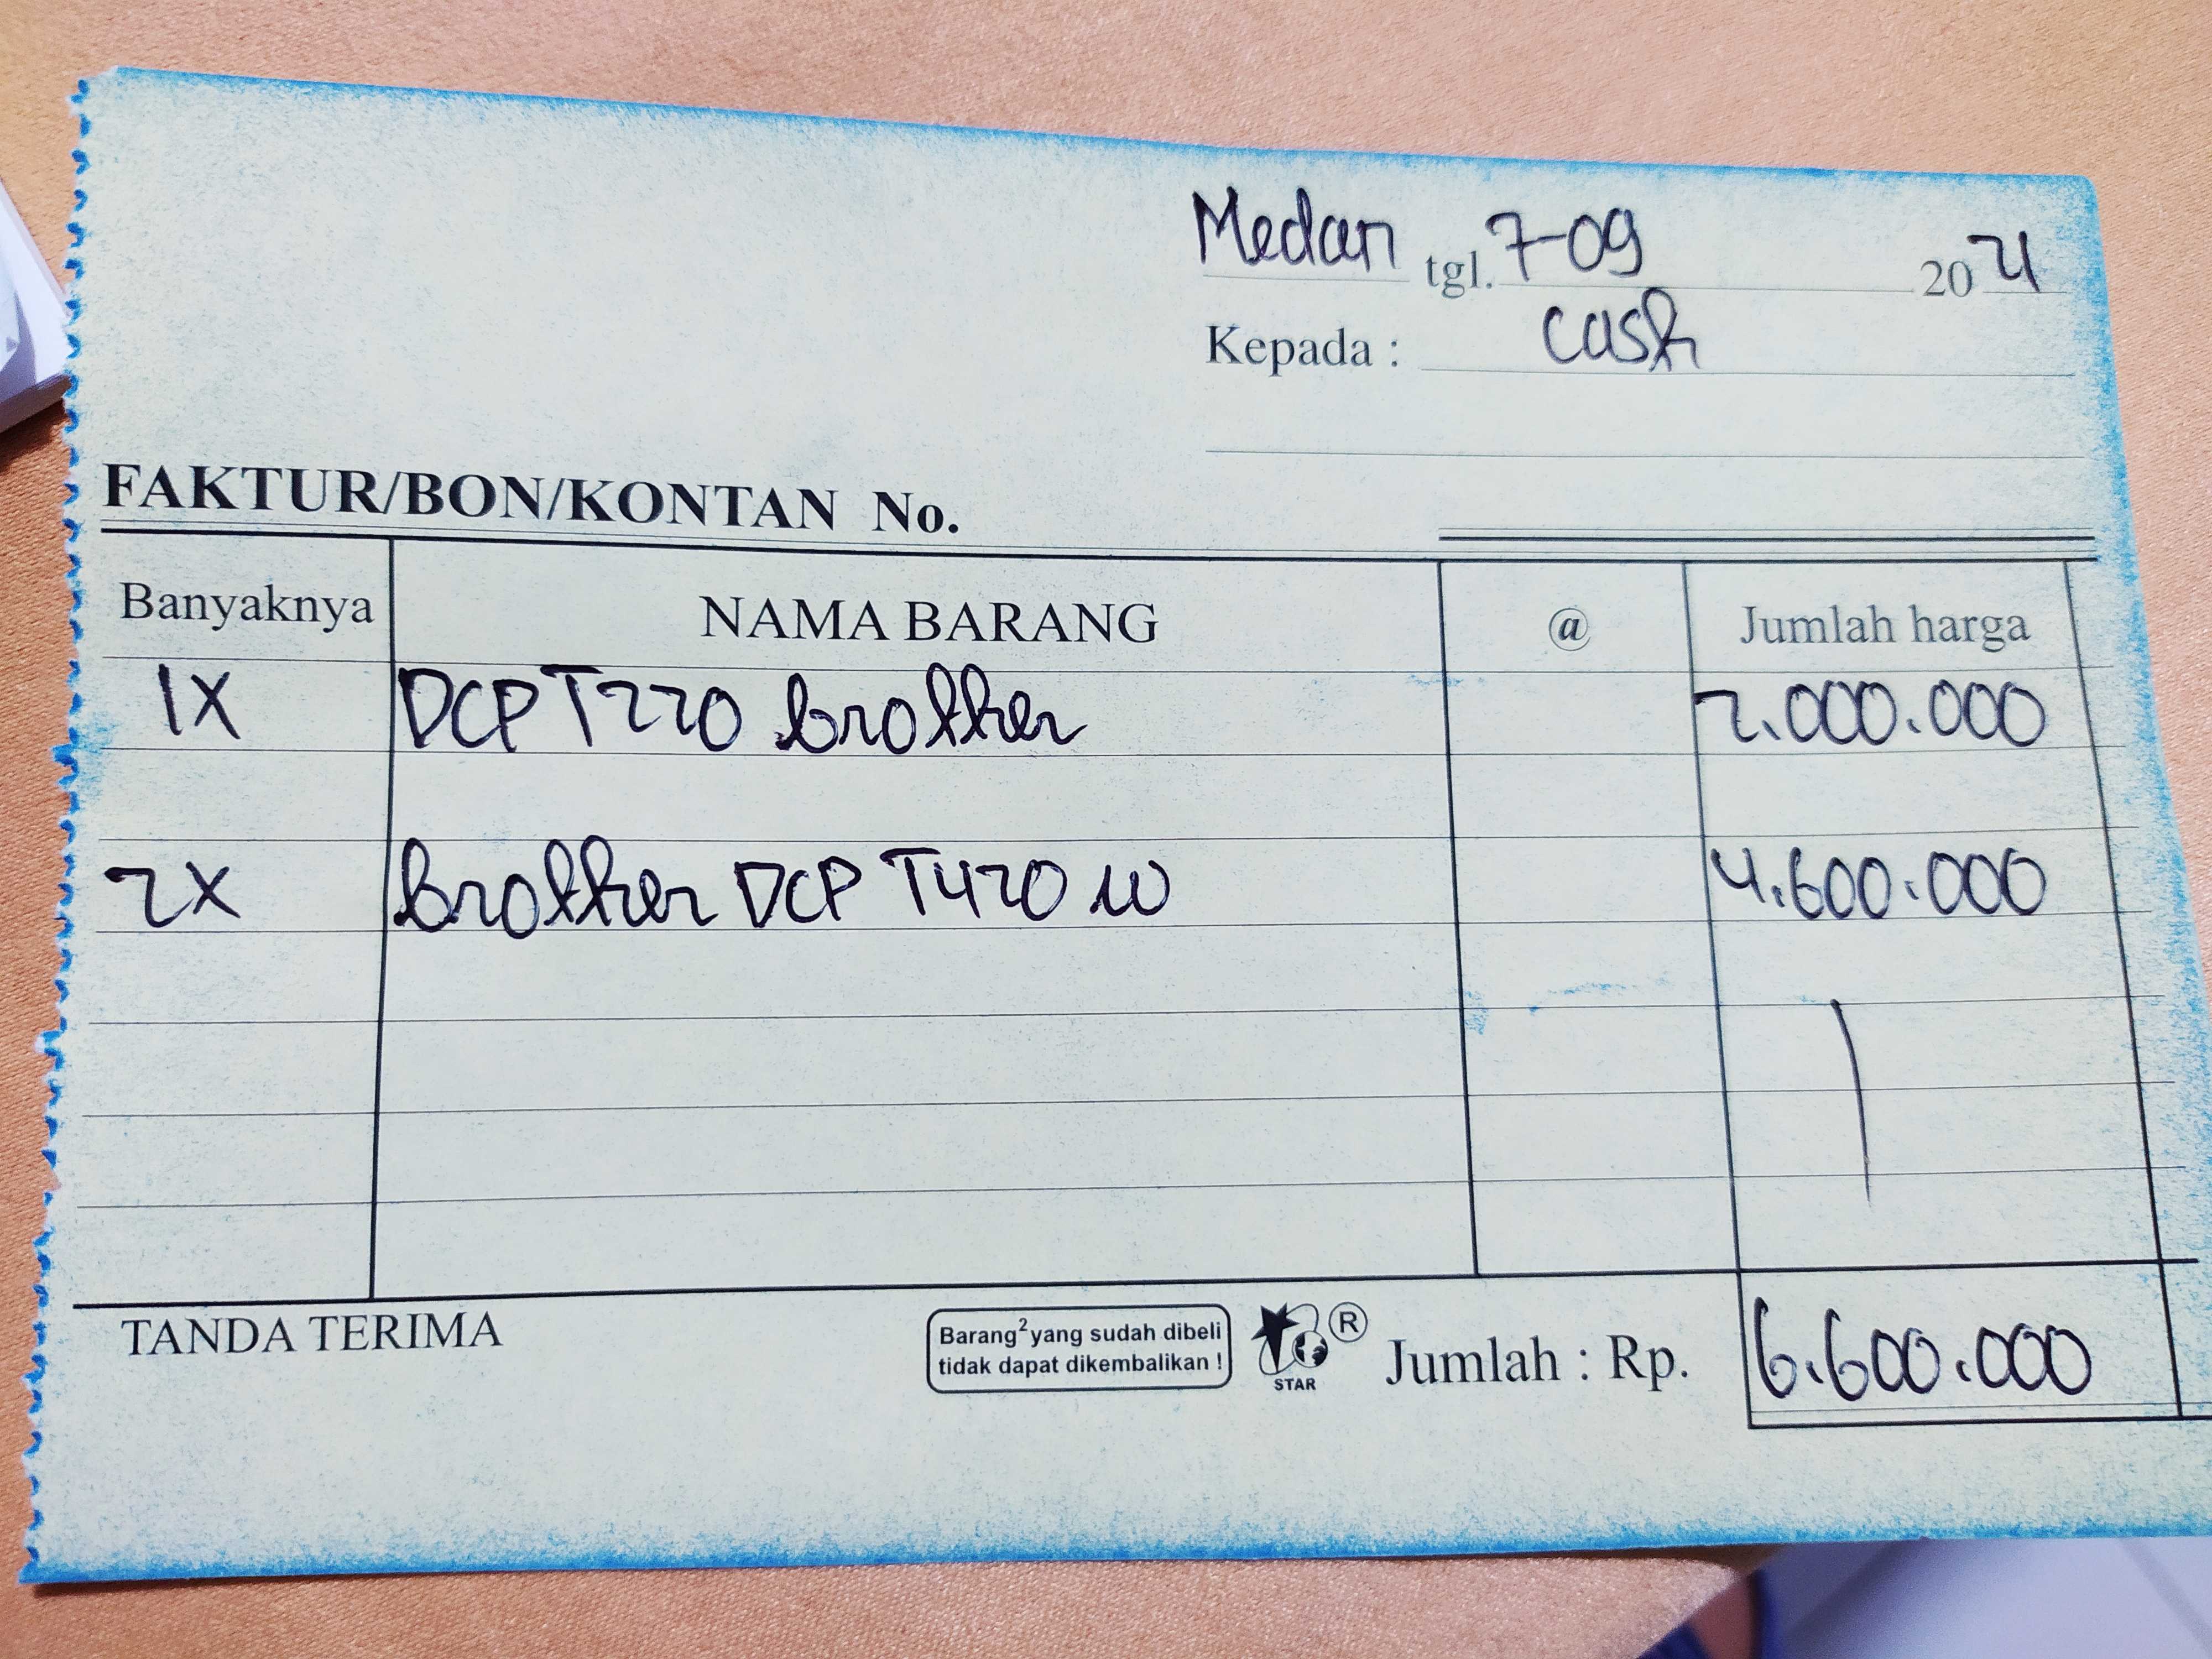 Medan tgl. 7-09 2021
Kepada : cash
FAKTUR/BON/KONTAN No.
Banyaknya NAMA BARANG @ Jumlah harga
1X DCP T220 brother 2.000.000
2X brother DCP T420 W 4.600.000
TANDA TERIMA
Barang² yang sudah dibeli
tidak dapat dikembalikan !
STAR ®
Jumlah : Rp. 6.600.000